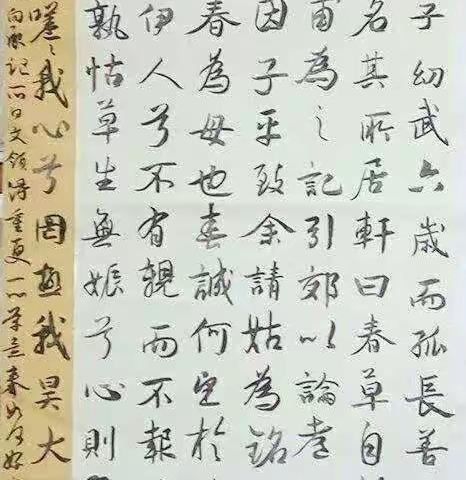 子幼武六歲而孤長善
名其所居軒曰春草自
甫為之記引郊以論孝
因子平致余請姑為銘
春為母也春誠何望於
伊人兮不有親而不報
孰怙草生無娠兮心則
嗟〻我心兮罔極我昊大
向承記文領得重更